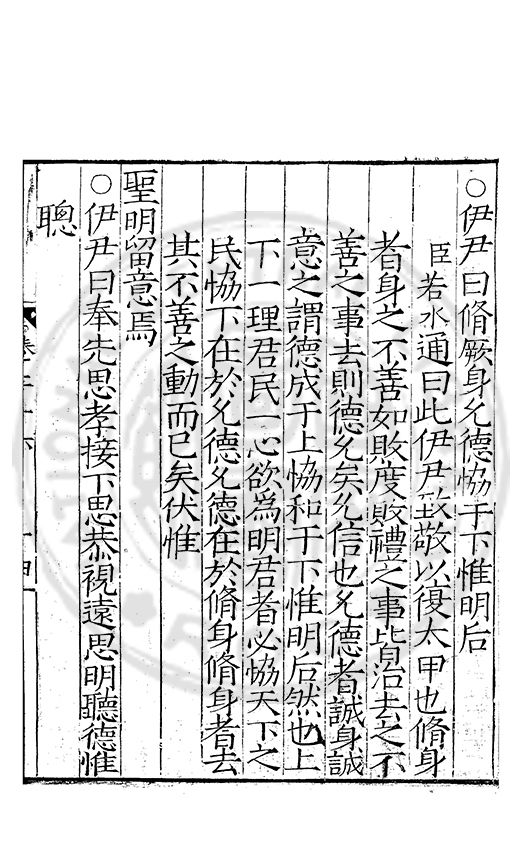 ○伊尹曰脩厥身允德恊于下惟明后
臣若水通曰此伊尹致敬以復太甲也脩身
者身之不善如敗度敗禮之事皆治去之不
善之事去則德允矣允信也允德者誠身誠
意之謂德成于上恊和于下惟明后然也上
下一理君民一心欲為明君者必恊天下之
民恊下在於允德允德在於脩身脩身者去
其不善之動而已矣伏惟
聖明留意焉
○伊尹曰奉先思孝接下思恭視遠思明聽德惟
聰
卷三十六
十四